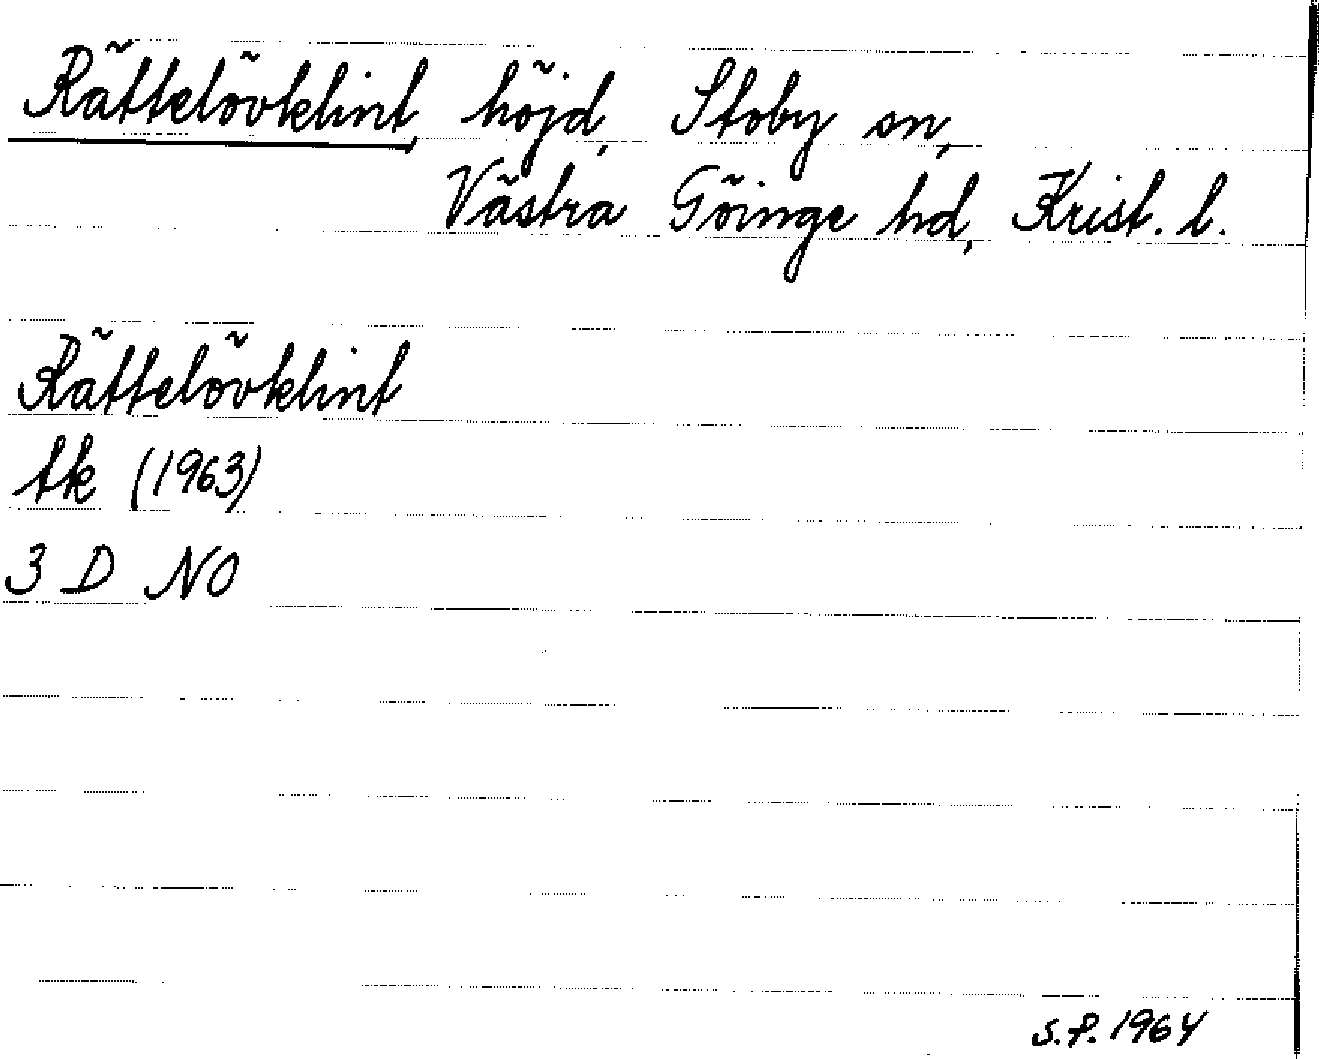 Rättelövklint, höjd, Stoby sn,
Västra Göinge hd, Krist. l.
Rättelövklint
tk (1963)
3 D NO
S.P. 1964